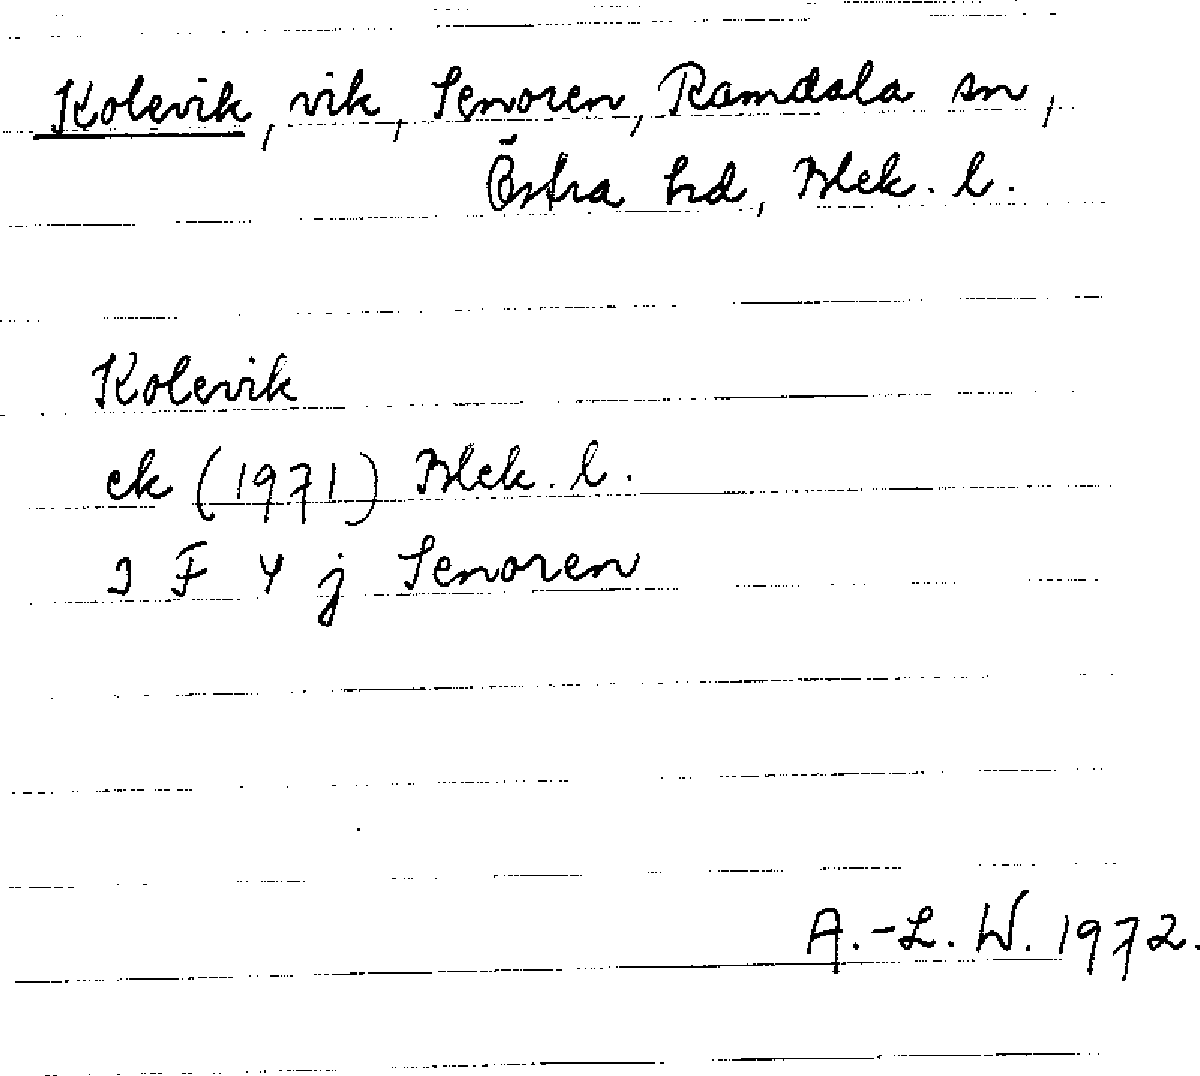 Kolevik, vik, Senoren, Ramdala sn,
Östra hd, Blek. l.
Kolevik
ek (1971) Blek. l.
3 F 4 j Senoren
A.-L. W. 1972.